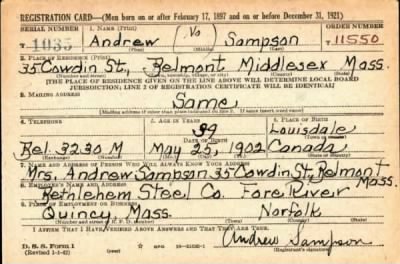 REGISTRATION CARD—(Men born on or after February 17, 1897 and on or before December 31, 1921)
SERIAL NUMBER 1. NAME (Print) ORDER NUMBER
T 1035 Andrew (No) Sampson T 11550
(First) (Middle) (Last)
2. PLACE OF RESIDENCE (Print)
35 Cowdin St., Belmont Middlesex Mass.
(Number and street) (Town, township, village, or city) (County) (State)
[THE PLACE OF RESIDENCE GIVEN ON THE LINE ABOVE WILL DETERMINE LOCAL BOARD
JURISDICTION; LINE 2 OF REGISTRATION CERTIFICATE WILL BE IDENTICAL]
3. MAILING ADDRESS
Same
[Mailing address if other than place indicated on line 2. If same insert word same]
4. TELEPHONE 5. AGE IN YEARS 6. PLACE OF BIRTH
39 Louisdale
DATE OF BIRTH (Town or county)
Bel. 3230 M May 25, 1902 Canada
(Exchange) (Number) (Mo.) (Day) (Yr.) (State or country)
7. NAME AND ADDRESS OF PERSON WHO WILL ALWAYS KNOW YOUR ADDRESS
Mrs. Andrew Sampson 35 Cowdin St., Belmont Mass.
8. EMPLOYER'S NAME AND ADDRESS
Bethlehem Steel Co. Fore River
9. PLACE OF EMPLOYMENT OR BUSINESS
Quincy, Mass. Norfolk
(Number and street or R. F. D. number) (Town) (County) (State)
I AFFIRM THAT I HAVE VERIFIED ABOVE ANSWERS AND THAT THEY ARE TRUE.
D. S. S. Form 1 Andrew Sampson
(Revised 1-1-42) GPO 16-21630-1